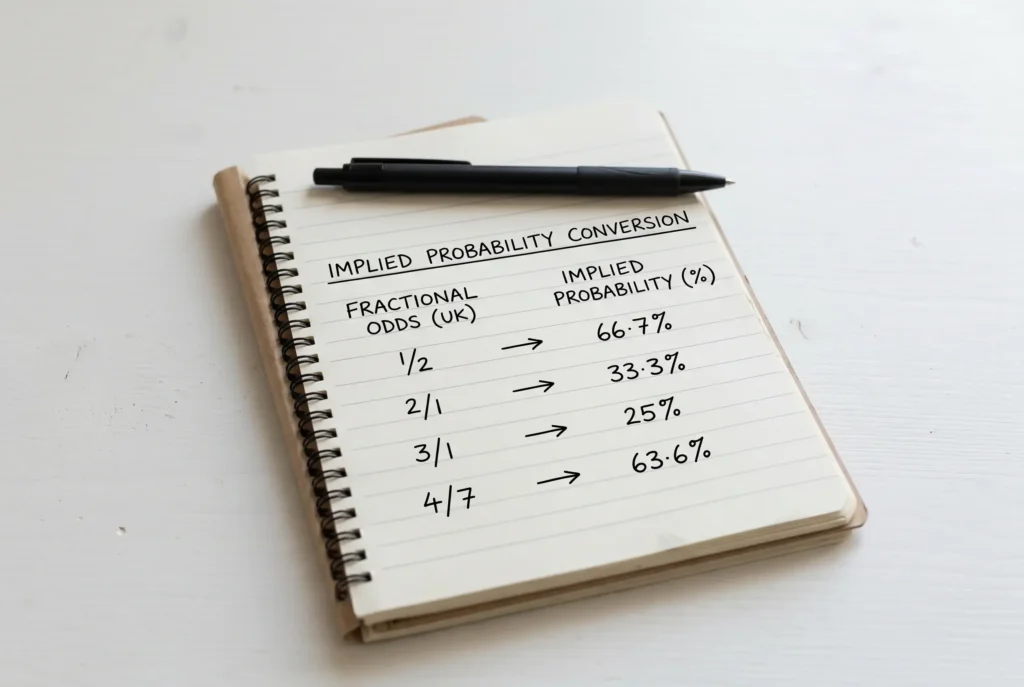 IMPLIED PROBABILITY CONVERSION
FRACTIONAL ODDS (UK)
IMPLIED PROBABILITY (%)
1/2 → 66·7%
2/1 → 33·3%
3/1 → 25%
4/7 → 63·6%